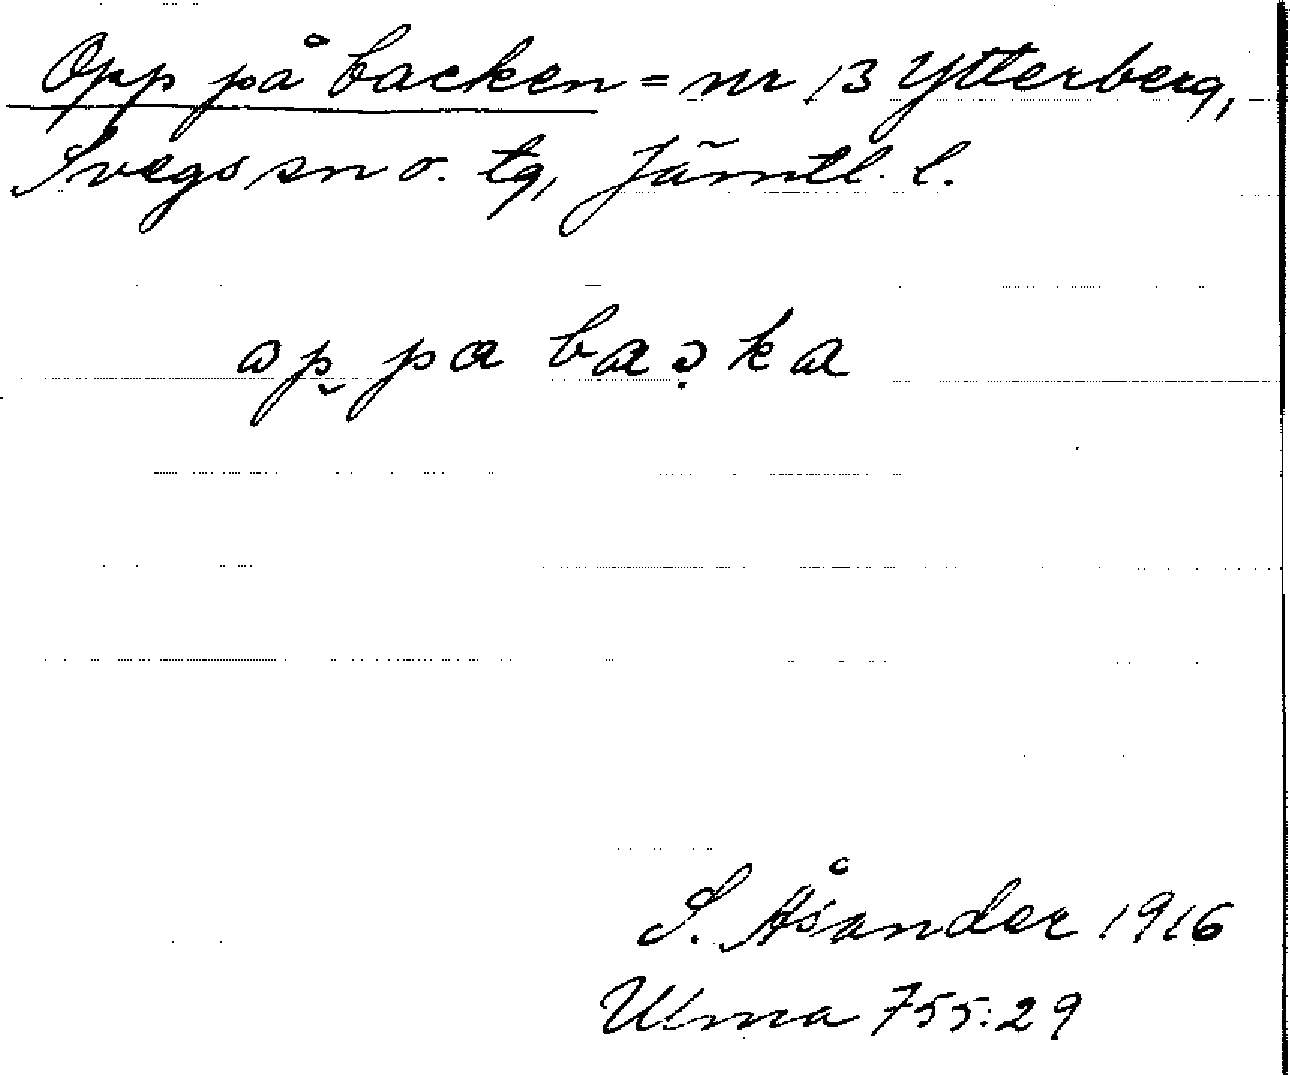 Opp på backen = nr 13 Ytterberg,
Svegs sn o. tg, Jämtl. l.
op̬ pa baə̣ka
S. Åsander 1916
Ulma 755:29